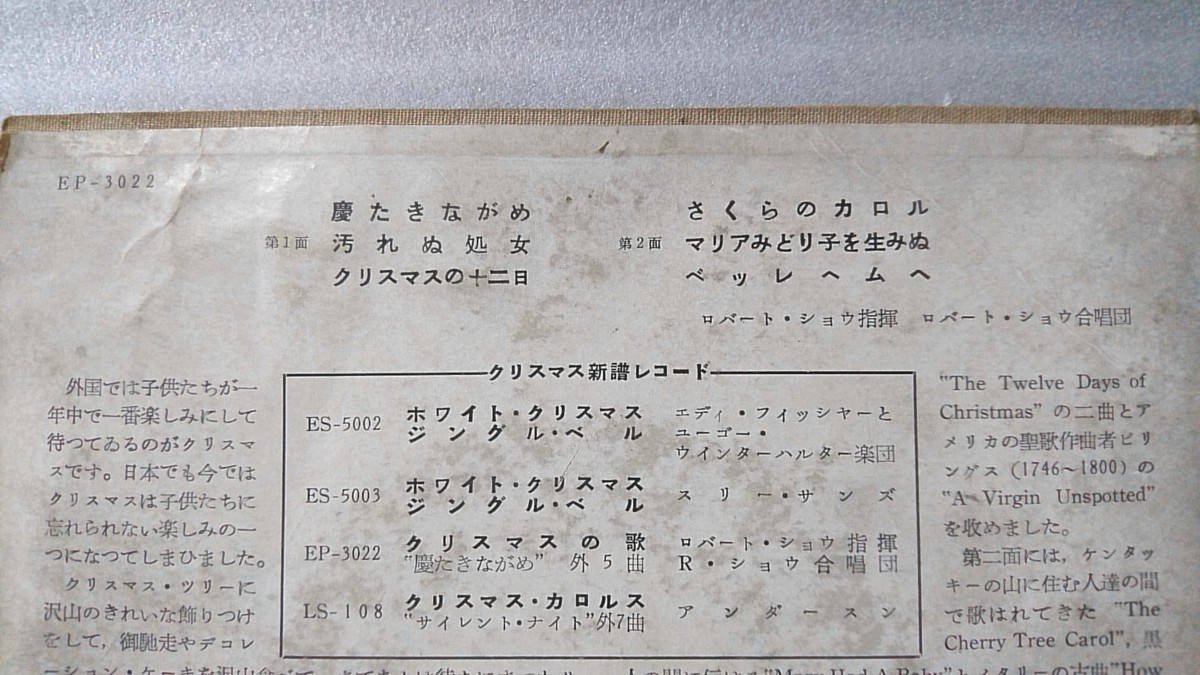 EP-3022
慶たきながめ
第1面 汚れぬ処女
クリスマスの十二日
さくらのカロル
第2面 マリアみどり子を生みぬ
ベッレヘムヘ
ロバート・ショウ指揮 ロバート・ショウ合唱団
外国では子供たちが一
年中で一番楽しみにして
待つてゐるのがクリスマ
スです。日本でも今では
クリスマスは子供たちに
忘れられない楽しみの一
つになつてしまひました。
クリスマス・ツリーに
沢山のきれいな飾りつけ
をして，御馳走やデコレ
クリスマス新譜レコード
ES-5002 ホワイト・クリスマス エディ・フィッシャーと
ジングル・ベル ユーゴー・
ウインターハルター楽団
ES-5003 ホワイト・クリスマス スリー・サンズ
ジングル・ベル
EP-3022 クリスマスの歌 ロバート・ショウ指揮
“慶たきながめ” 外5曲 R・ショウ合唱団
LS-108 クリスマス・カロルス アンダースン
“サイレント・ナイト”外7曲
“The Twelve Days of
Christmas” の二曲とア
メリカの聖歌作曲者ビリ
ングス (1746～1800) の
“A Virgin Unspotted”
を収めました。
第二面には，ケンタッ
キーの山に住む人達の間
で歌はれてきた “The
Cherry Tree Carol”, 黒